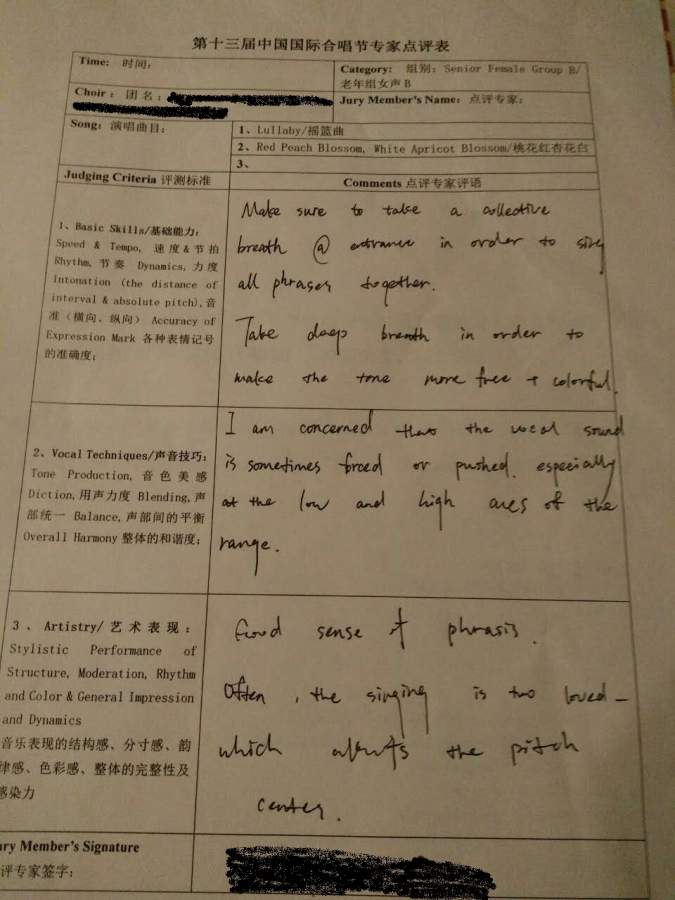 第十三届中国国际合唱节专家点评表
Time: 时间：
Category: 组别：Senior Female Group B/
老年组女声 B
Choir：团名：
Jury Member's Name: 点评专家：
Song: 演唱曲目：
1、Lullaby/摇篮曲
2、Red Peach Blossom, White Apricot Blossom/桃花红杏花白
3、
Judging Criteria 评测标准
Comments 点评专家评语
1、Basic Skills/基础能力：
Speed & Tempo, 速度&节拍
Rhythm, 节奏 Dynamics, 力度
Intonation (the distance of
interval & absolute pitch), 音
准（横向、纵向） Accuracy of
Expression Mark 各种表情记号
的准确度；
Make sure to take a collective
breath @ entrance in order to sing
all phrases together.
Take deep breath in order to
make the tone more free + colorful.
2、Vocal Techniques/声音技巧：
Tone Production, 音色美感
Diction, 用声力度 Blending, 声
部统一 Balance, 声部间的平衡
Overall Harmony 整体的和谐度；
I am concerned that the vocal sound
is sometimes forced or pushed. especially
at the low and high ares of the
range.
3、Artistry/艺术表现：
Stylistic Performance of
Structure, Moderation, Rhythm
and Color & General Impression
and Dynamics
音乐表现的结构感、分寸感、韵
律感、色彩感、整体的完整性及
感染力
Good sense of phrasis.
Often, the singing is too loved -
which the pitch
center.
ury Member's Signature
评专家签字：